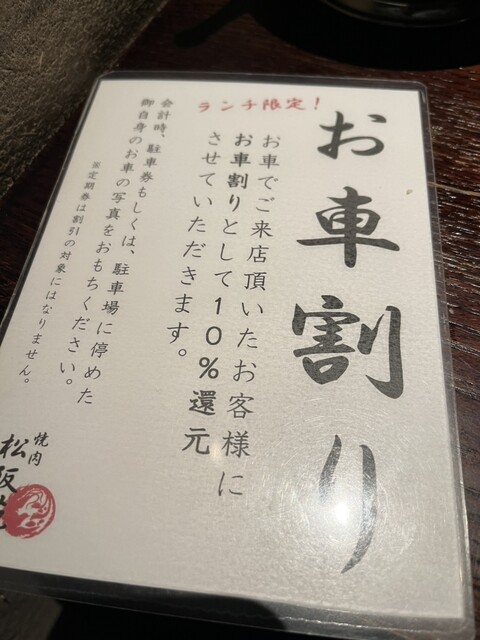 お車割り
ランチ限定！
お車でご来店頂いたお客様に
お車割りとして10％還元
させていただきます。
会計時、駐車券もしくは、駐車場に停めた
御自身のお車の写真をおもちください。
※定期券は割引の対象にはなりません。
焼肉
松阪